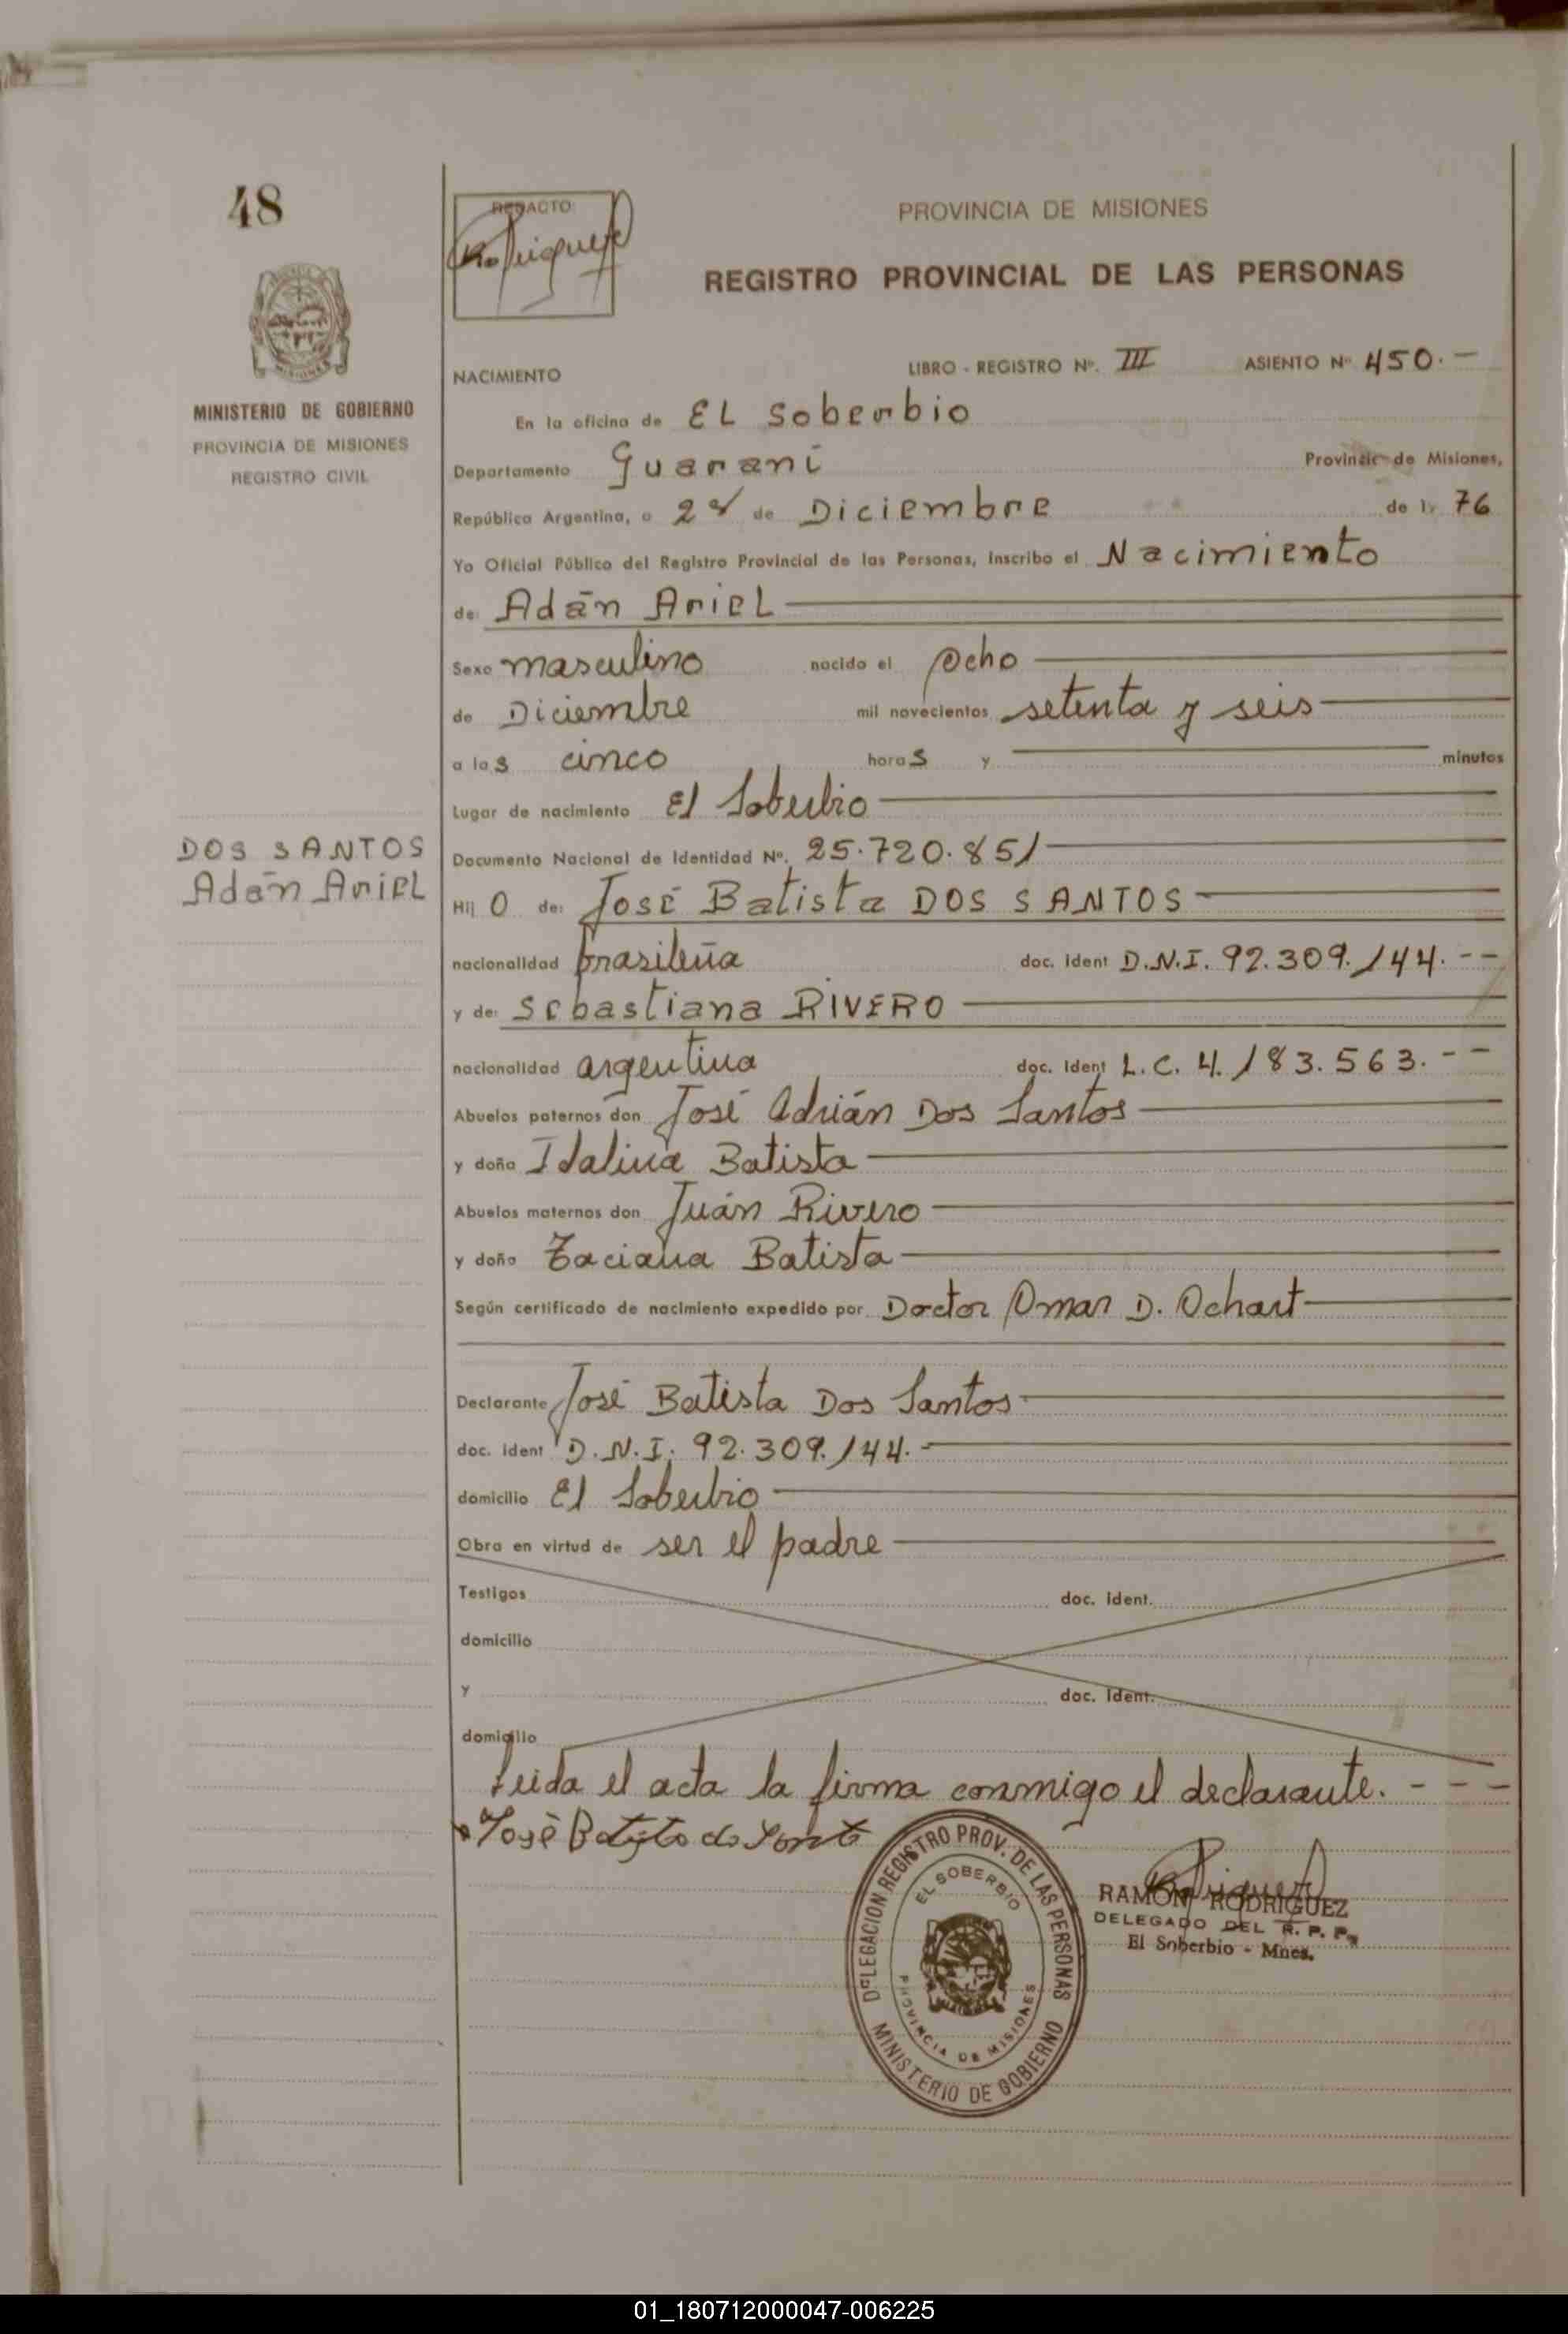 48
REDACTO
Rodriguez
PROVINCIA DE MISIONES
REGISTRO PROVINCIAL DE LAS PERSONAS
MINISTERIO DE GOBIERNO
PROVINCIA DE MISIONES
REGISTRO CIVIL
NACIMIENTO
LIBRO - REGISTRO Nº. III ASIENTO Nº 450. —
En la oficina de EL Soberbio
Departamento Guaraní Provincia de Misiones,
República Argentina, a 28 de Diciembre de 19 76
Yo Oficial Público del Registro Provincial de las Personas, Inscribo el Nacimiento
de: Adán Ariel
Sexo masculino nacido el Ocho
de Diciembre mil novecientos setenta y seis
a las cinco horas y minutos
Lugar de nacimiento El Soberbio
DOS SANTOS
Adán Ariel
Documento Nacional de Identidad Nº. 25.720.851
Hijo de: José Batista DOS SANTOS
nacionalidad brasileña doc. ident D.N.I. 92.309.144. --
y de: Sebastiana RIVERO
nacionalidad argentina doc. ident L.C. 4.183.563. --
Abuelos paternos don José Adrián Dos Santos
y doña Idalina Batista
Abuelos maternos don Juán Rivero
y doña Taciana Batista
Según certificado de nacimiento expedido por Doctor Omar D. Ochart
Declarante José Batista Dos Santos
doc. ident D.N.I. 92.309.144. -
domicilio El Soberbio
Obra en virtud de ser el padre
Testigos doc. ident.
domicilio
y doc. ident.
domicilio
Leida el acta la firma conmigo el declarante. - - -
José Batista do Santo
DELEGACION REGISTRO PROV. DE LAS PERSONAS
MINISTERIO DE GOBIERNO
EL SOBERBIO
PROVINCIA DE MISIONES
Rodriguez
RAMON RODRIGUEZ
DELEGADO DEL R. P. P.
El Soberbio - Mnes.
01_180712000047-006225